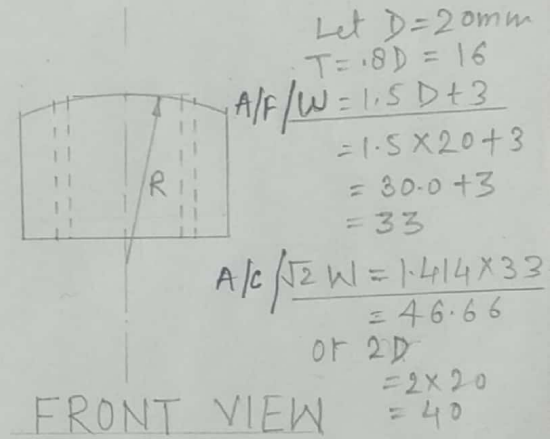 Let D = 20mm
T = .8D = 16
A/F/W = 1.5D+3
= 1.5 × 20 + 3
= 30.0 + 3
= 33
R
A/C/√2 W = 1.414 × 33
= 46.66
or 2D
= 2 × 20
= 40
FRONT VIEW